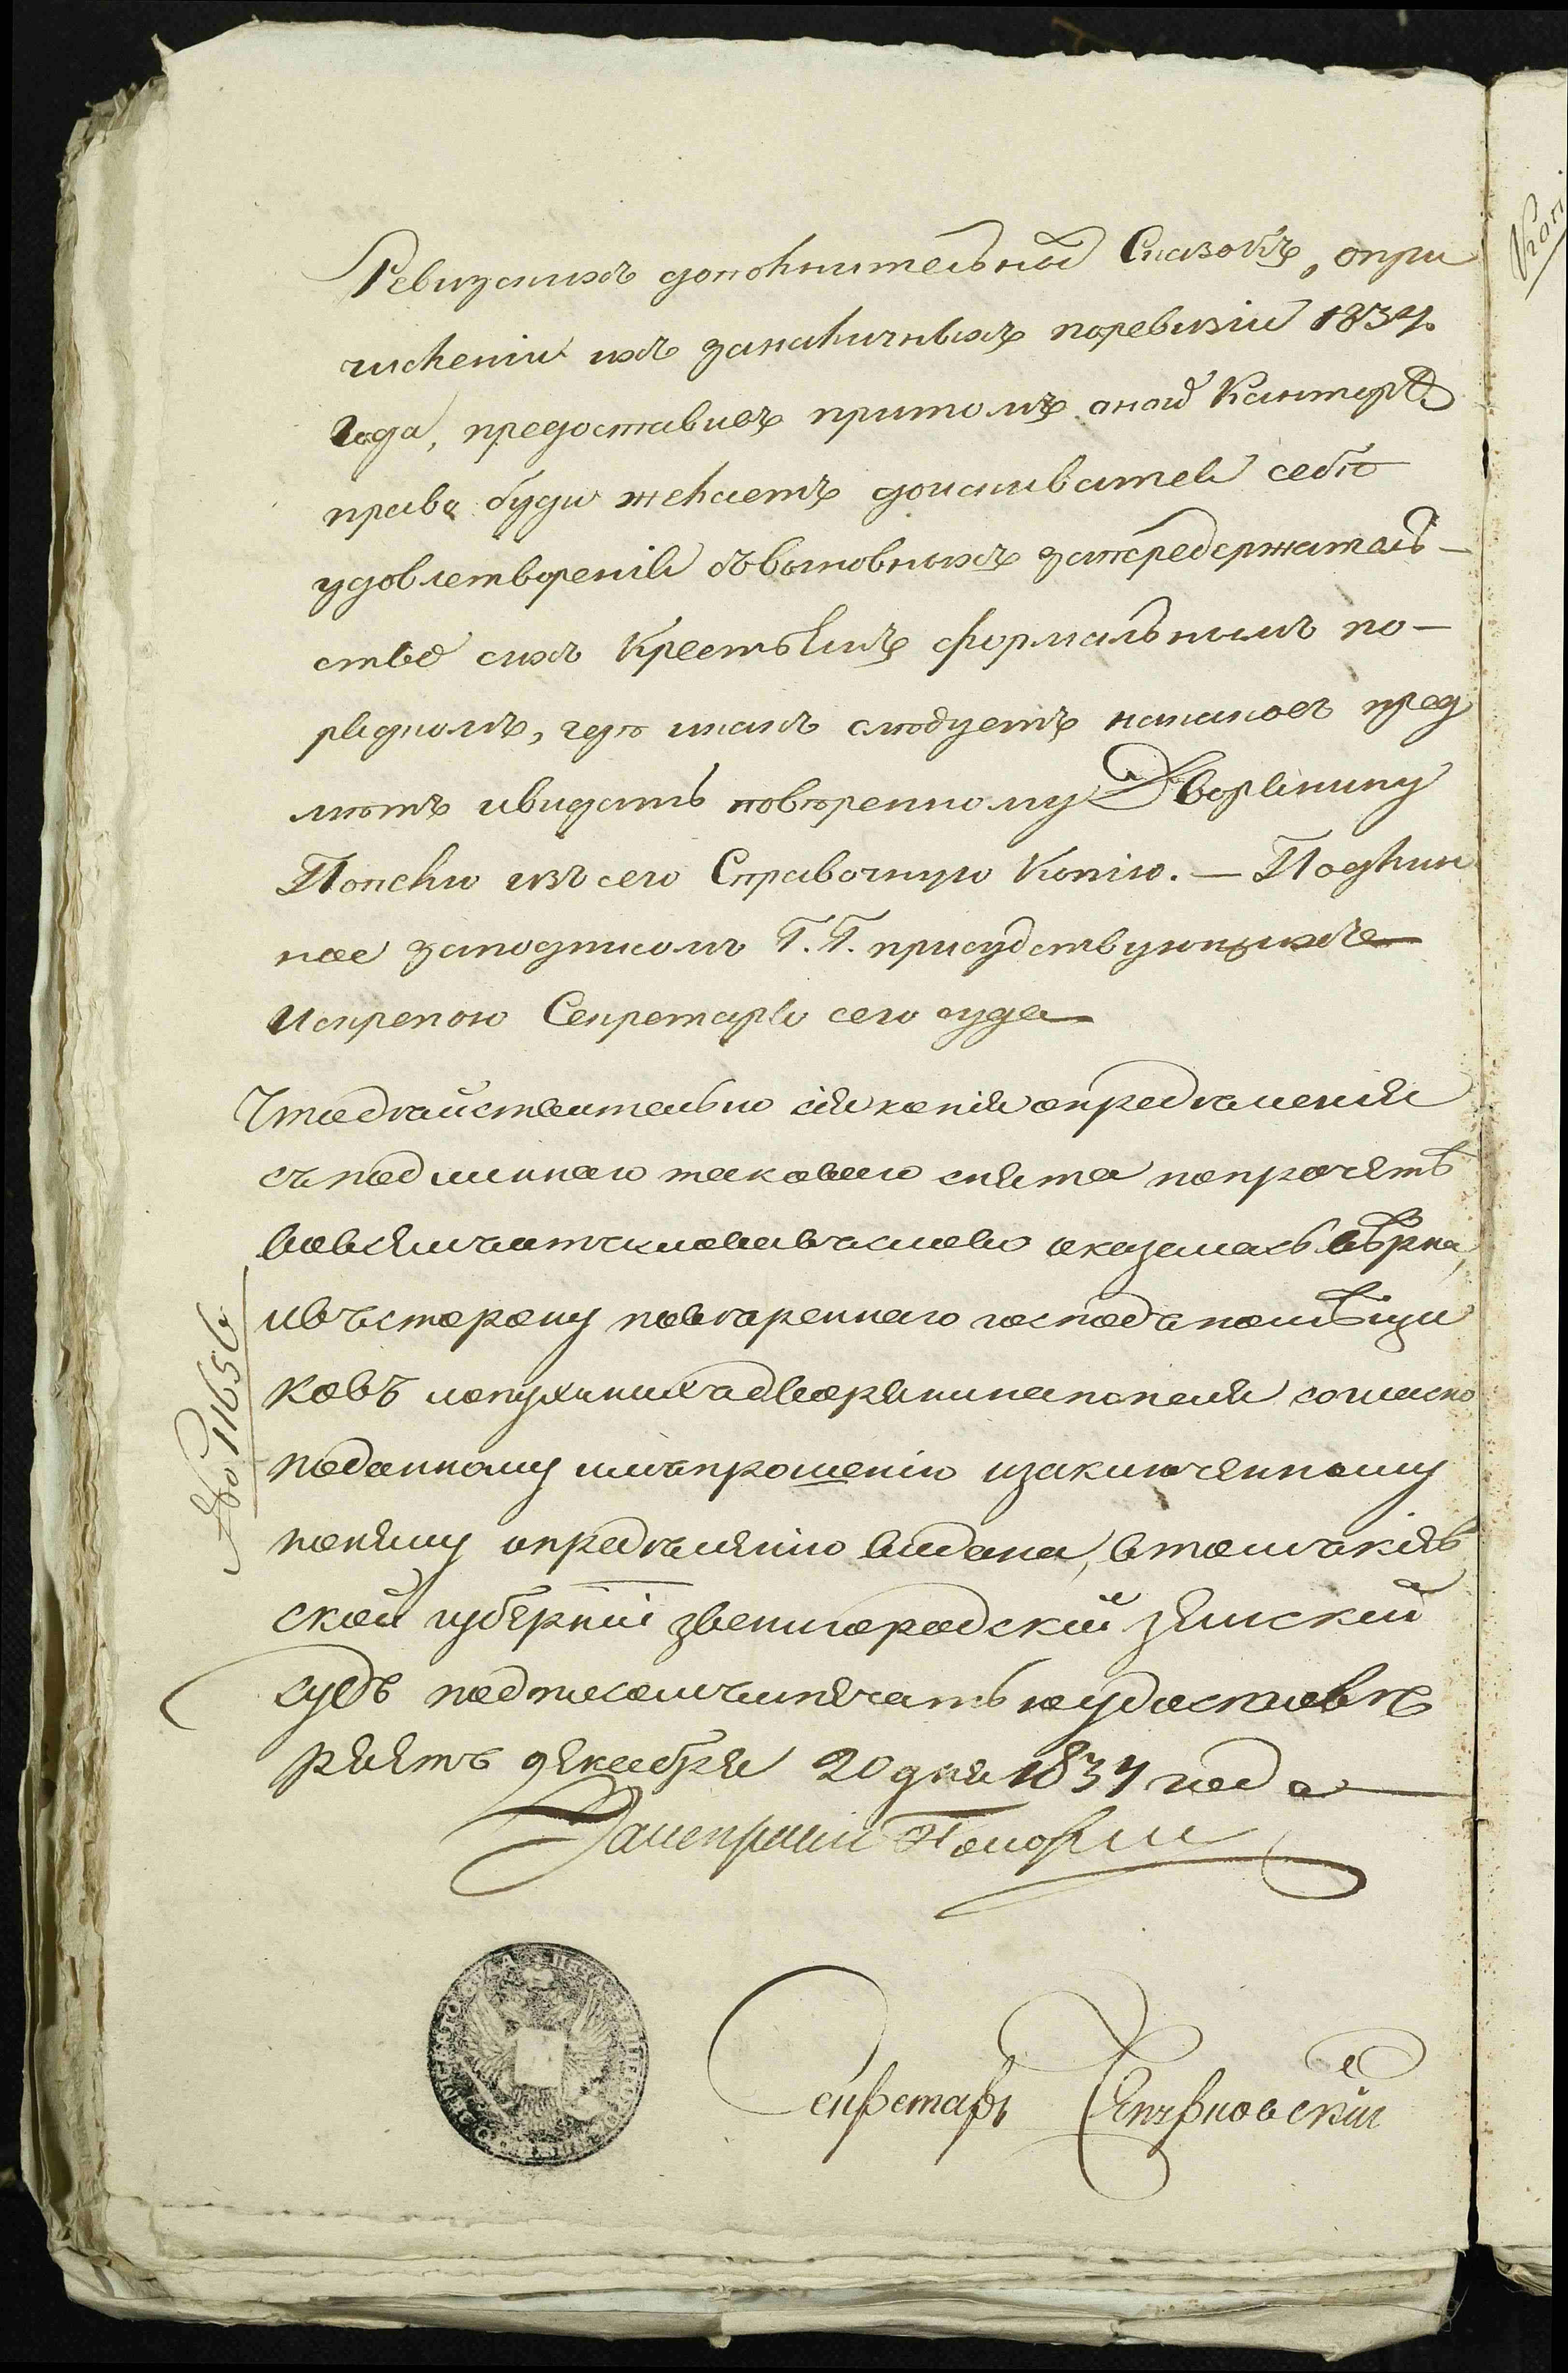 Ревизскихъ дополнительной Сказокъ, опри
численіи ихъ заналичныхъ поревизіи 1834.
Года, предоставивъ притомъ оной Канторѣ
право буди желаетъ доискиватся себѣ
удовлетворенія съвиновныхъ запередержатель-
ство сихъ Крестьянъ формальнымъ по-
рядкомъ, гдѣ икакъ слѣдуетъ накаковъ пред
мѣтъ ивидать повѣренному Дворянину
Попелю изъ сего Справочную Копію. — Подлин
ное заподписомъ Г.Г. присудствующихъ
Искрепою Секретаря сего суда
Чтодѣйствительно сія копія опредѣленія
съ подлиннаго таковаго снята попрочетѣ
вовсѣмъ отслововъ слово оказалась вѣрна,
ивъ сторону повѣреннаго господъ помѣщи
ковъ лопухиныхъ дворянина попеля согласно
поданному имъ прошенію изаключенному
понему опредѣленію видана, втомъ кіев
ской губерніи звенигородскій земскій
судъ подписомъ ипечатью удостовѣ
ряетъ декабря 20 дня 1837 года
№ 11656
Секретарь
Копі